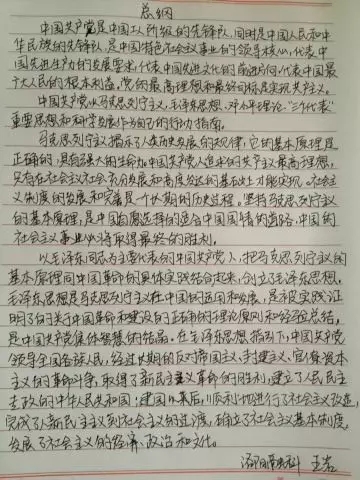 总纲
中国共产党是中国工人阶级的先锋队,同时是中国人民和中
华民族的先锋队,是中国特色社会主义事业的领导核心,代表中
国先进生产力的发展要求,代表中国先进文化的前进方向,代表中国最
广大人民的根本利益。党的最高理想和最终目标是实现共产主义。
中国共产党以马克思列宁主义、毛泽东思想、邓小平理论、“三个代表”
重要思想和科学发展作为自己的行动指南。
马克思列宁主义揭示了人类历史发展的规律,它的基本原理是
正确的,具有强大的生命力。中国共产党人追求的共产主义最高理想,
只有在社会主义社会充分发展和高度发达的基础上才能实现。社会主
义制度的发展和完善是一个长期的历史过程。坚持马克思列宁主义
的基本原理,走中国自愿选择的适合中国国情的道路,中国的
社会主义事业必将取得最终的胜利。
以毛泽东同志为主要代表的中国共产党人,把马克思列宁主义的
基本原理同中国革命的具体实践结合起来,创立了毛泽东思想。
毛泽东思想是马克思列宁主义在中国的运用和发展,是被实践证
明了的关于中国革命和建设的正确的理论原则和经验总结,
是中国共产党集体智慧的结晶。在毛泽东思想指引下,中国共产党
领导全国各族人民,经过长期的反对帝国主义、封建主义、官僚资本
主义的革命斗争,取得了新民主主义革命的胜利,建立了人民民主
专政的中华人民共和国;建国以后,顺利地进行了社会主义改造,
完成了从新民主主义到社会主义的过渡,确立了社会主义基本制度,
发展了社会主义的经济、政治和文化。
消化内科 王岩